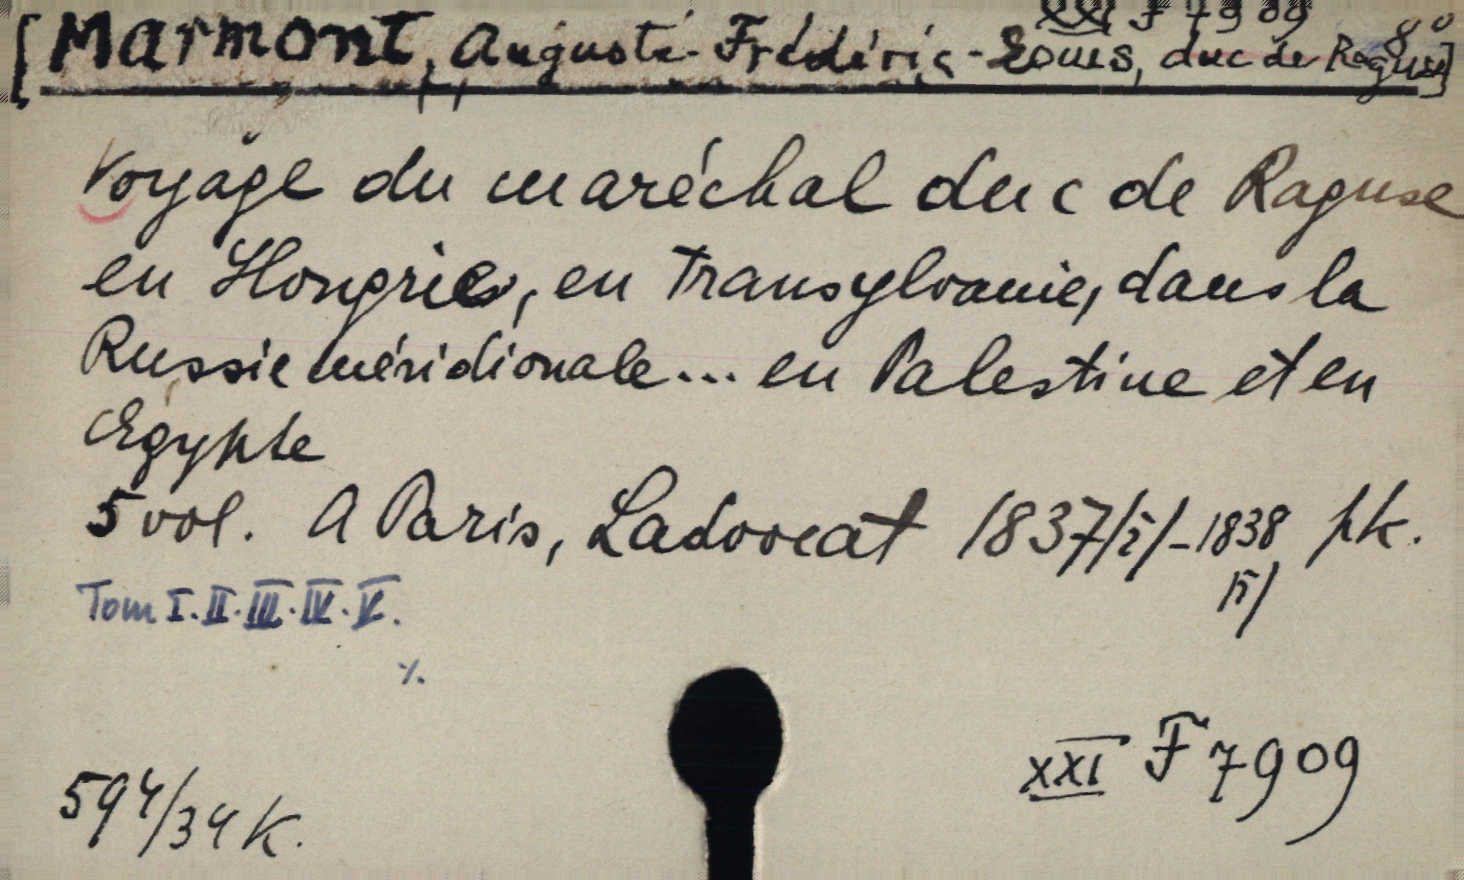 XXI F 7909
[Marmont, Auguste-Frédéric-Louis, duc de Raguse]
Voyage du maréchal duc de Raguse
en Hongrie, en Transylvanie, dans la
Russie méridionale... en Palestine et en
Egypte
5 vol. A Paris, Ladvocat 1837/ī/-1838 pk.
/ī/
Tom I. II. III. IV. V.
%.
XXI F 7909
594/34 K.